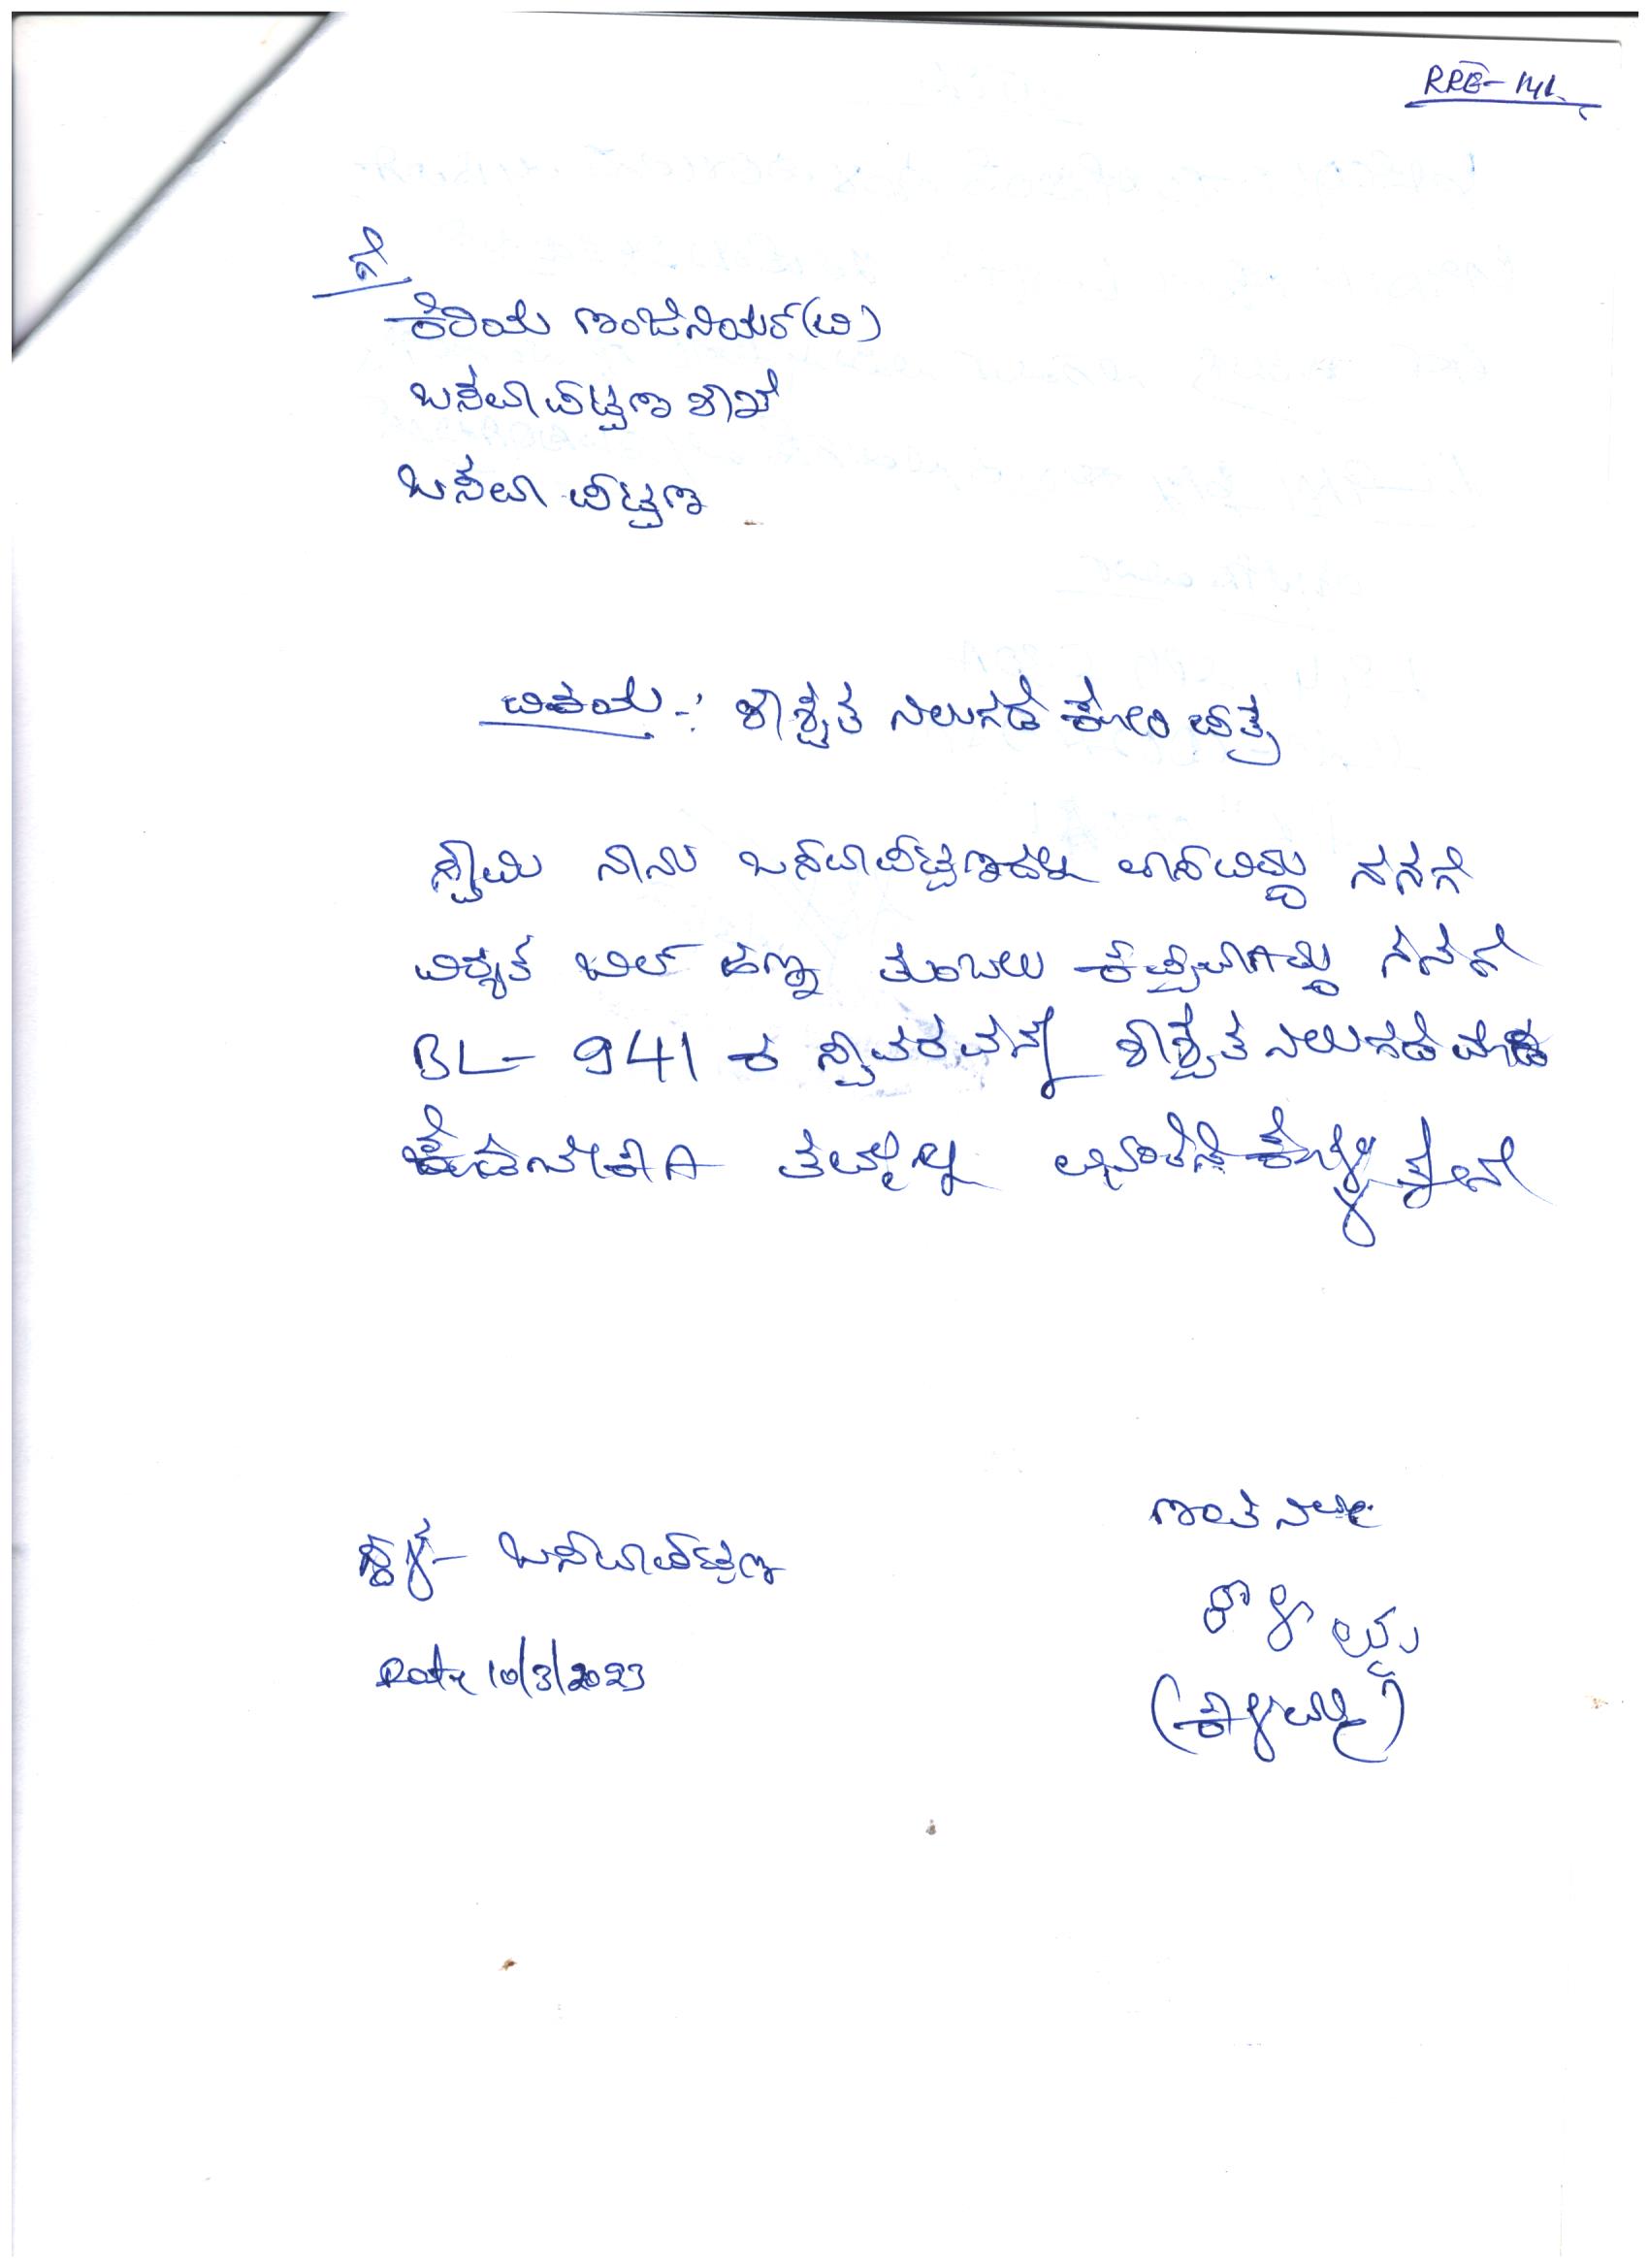 RRE-141
ಗೆ
ಕಿರಿಯ ಇಂಜಿನಿಯರ್(ವಿ)
ಬಸವಾಪಟ್ಟಣ ಶಾಖೆ
ಬಸವಾ ಪಟ್ಟಣ
ವಿಷಯ -: ಶಾಶ್ವತ ನಿಲುಗಡೆ ಕೋರಿ ಪತ್ರ
ಸ್ವಾಮಿ ನಾನು ಬಸವಾಪಟ್ಟಣದಲ್ಲಿ ವಾಸವಿದ್ದು ನನಗೆ
ವಿದ್ಯುತ ಬಿಲ್ ಹಣ ತುಂಬಲು ಕಷ್ಟವಾಗಿದ್ದು ನನಗೆ
BL- 941 ಕ ಸ್ಥಾವರವನ್ನು ಶಾಶ್ವತ ನಿಲುಗಡೆ ಮಾಡಿ
ಕೊಡಬೇಕಾಗಿ ತಮ್ಮಲ್ಲಿ ವಿನಂತಿಸಿಕೊಳ್ಳುತ್ತೇನೆ
ಸ್ಥಳ- ಬಸವಾಪಟ್ಟಣ
ಇಂತಿ ನಿಮ್ಮ
Date 10/3/2023